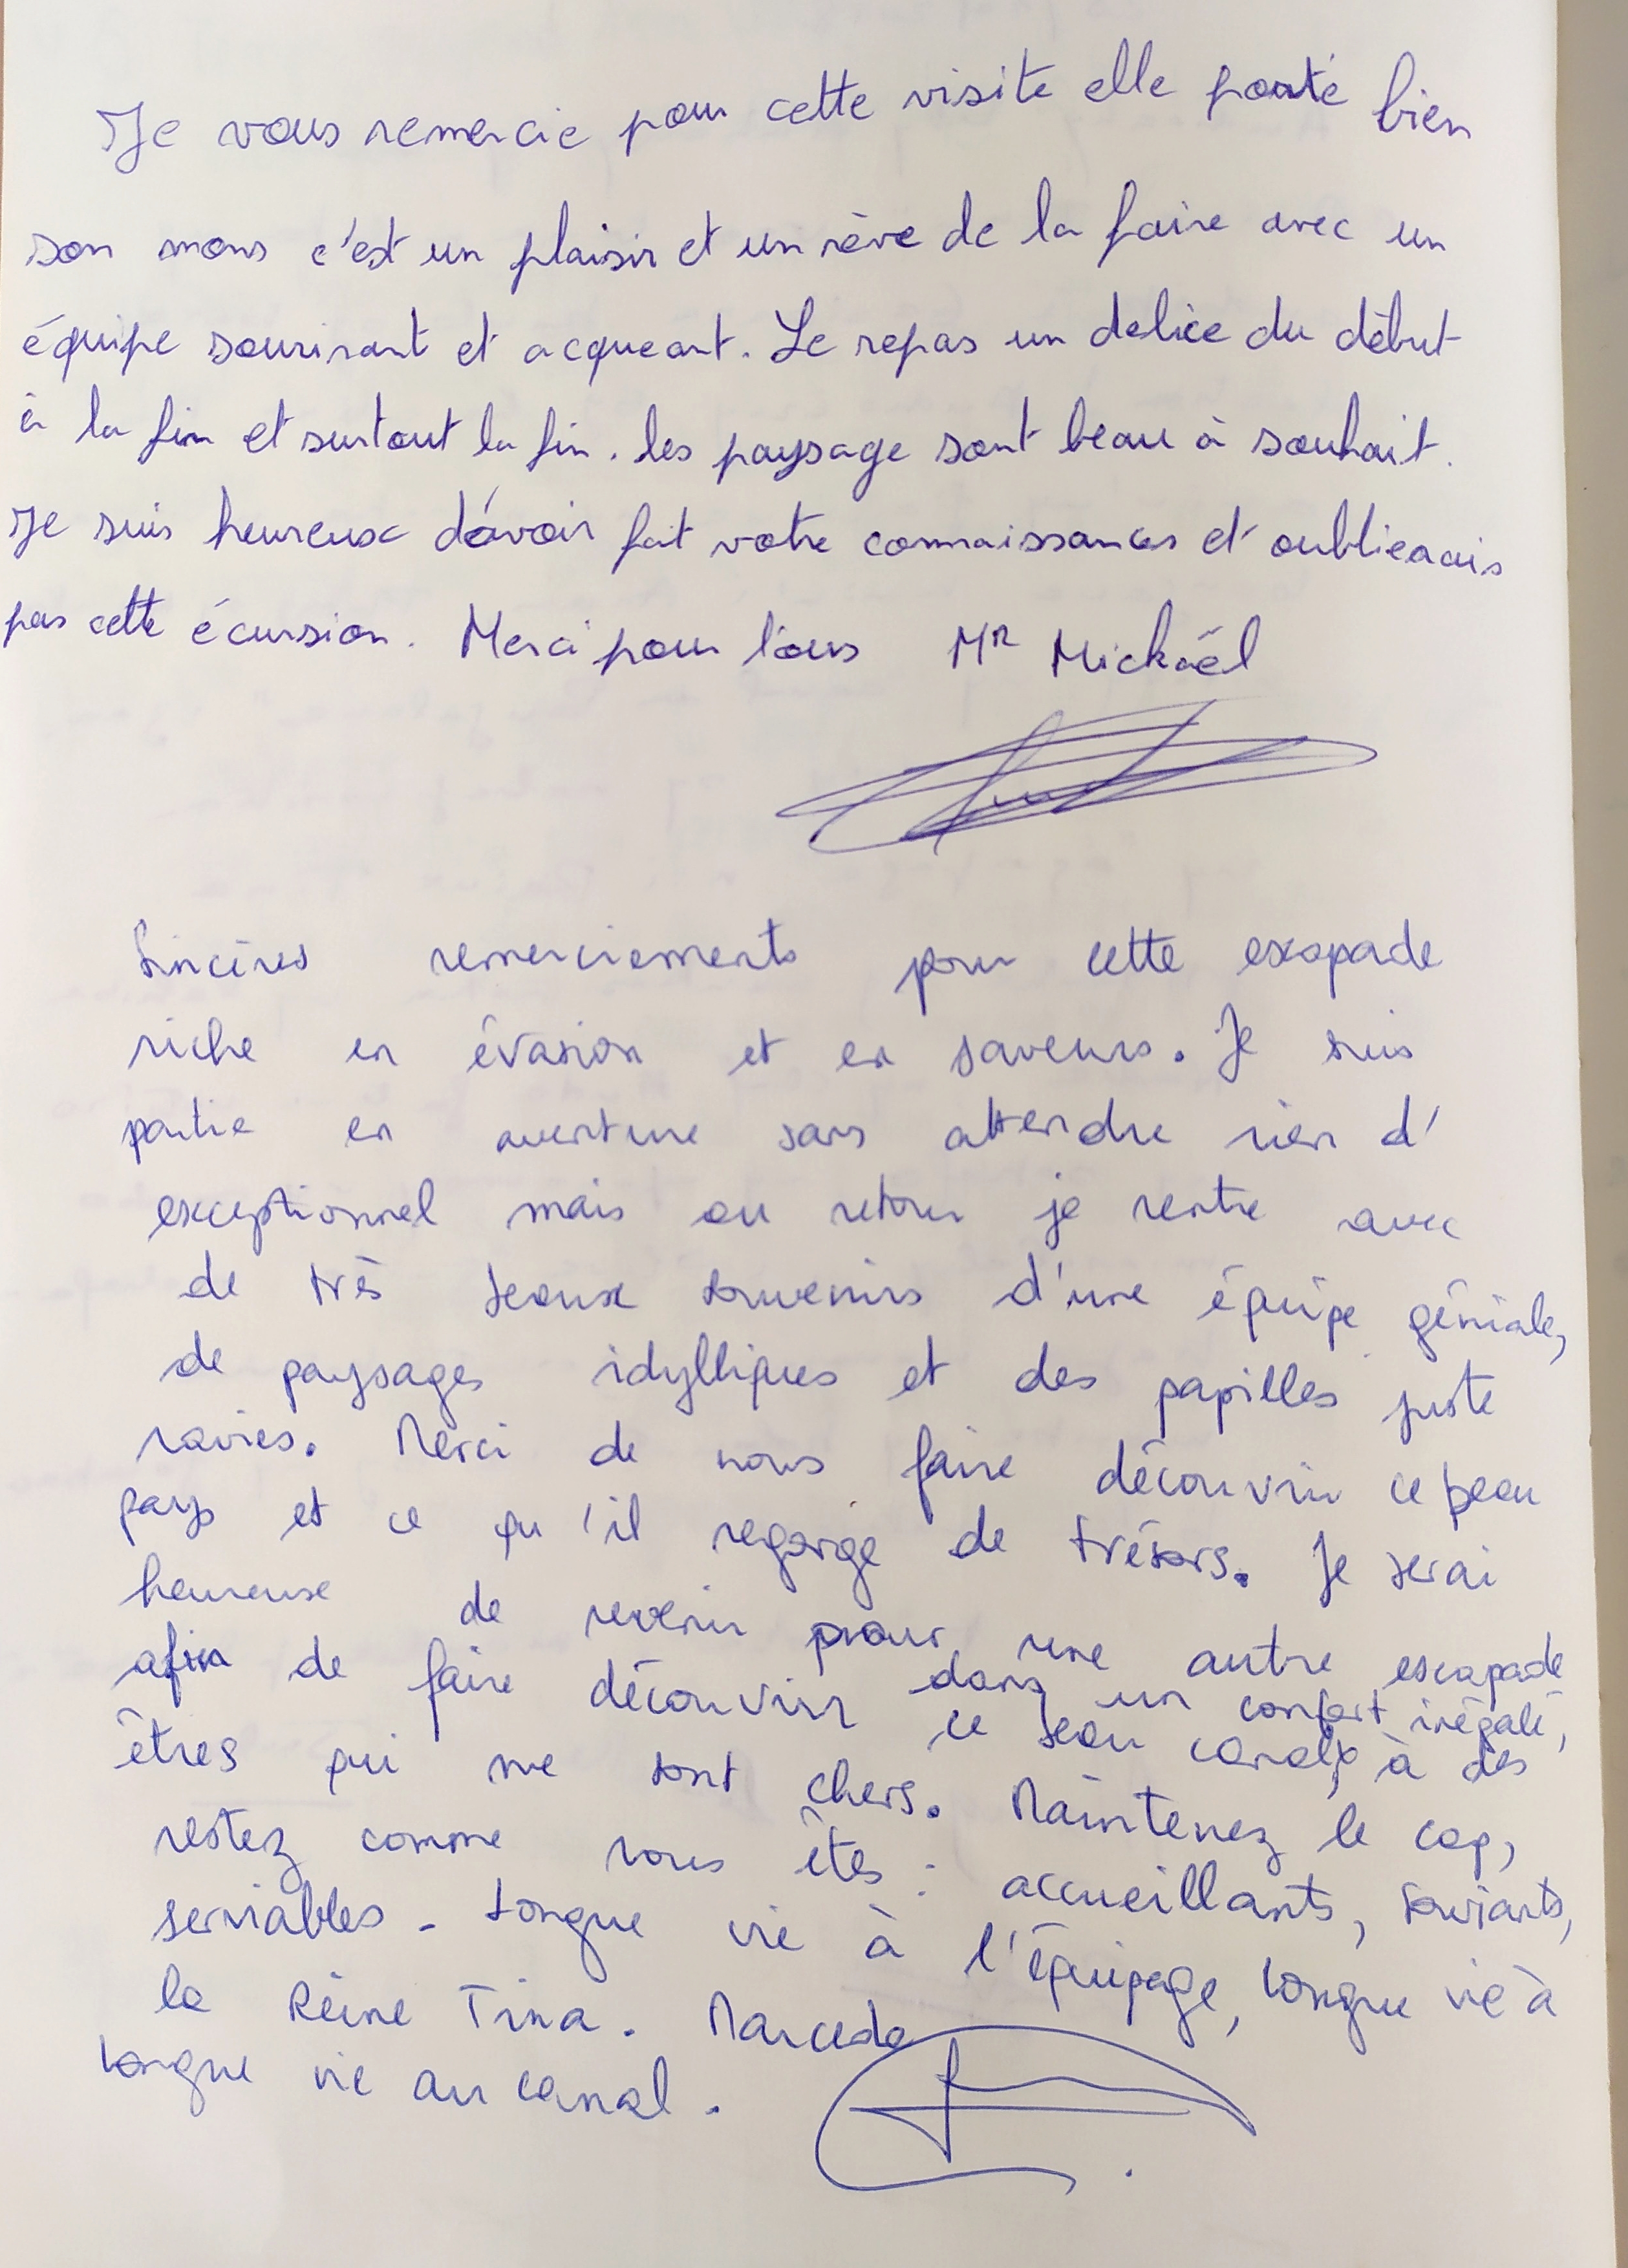 Je vous remercie pour cette visite elle porte bien
son mons c'est un plaisir et un rève de la faire avec un
équipe sourirant et acqueant. Le repas un delice du début
à la fin et surtout la fin. les paysage sont beau à souhait.
Je suis heureux d'avoir fait votre connaissances et oublieaais
pas cette écursion. Merci pour tous Mr Mickaël
Sincères remerciements pour cette escapade
riche en évasion et en saveurs. Je suis
partie en aventure sans attendre rien d'
exceptionnel mais au retour je rentre avec
de très beaux souvenirs d'une équipe géniale,
de paysages idylliques et des papilles juste
ravies. Merci de nous faire découvrir ce beau
pays et ce qu'il regorge de trésors. Je serai
heureuse de revenir pour une autre escapade
dans un confort inégalé,
afin de faire découvrir ce beau canal, à des
êtres qui me sont chers. Maintenez le cap,
restez comme vous êtes : accueillants, souriants,
serviables - Longue vie à l'équipage, longue vie à
la Reine Tina.
longue vie au canal.